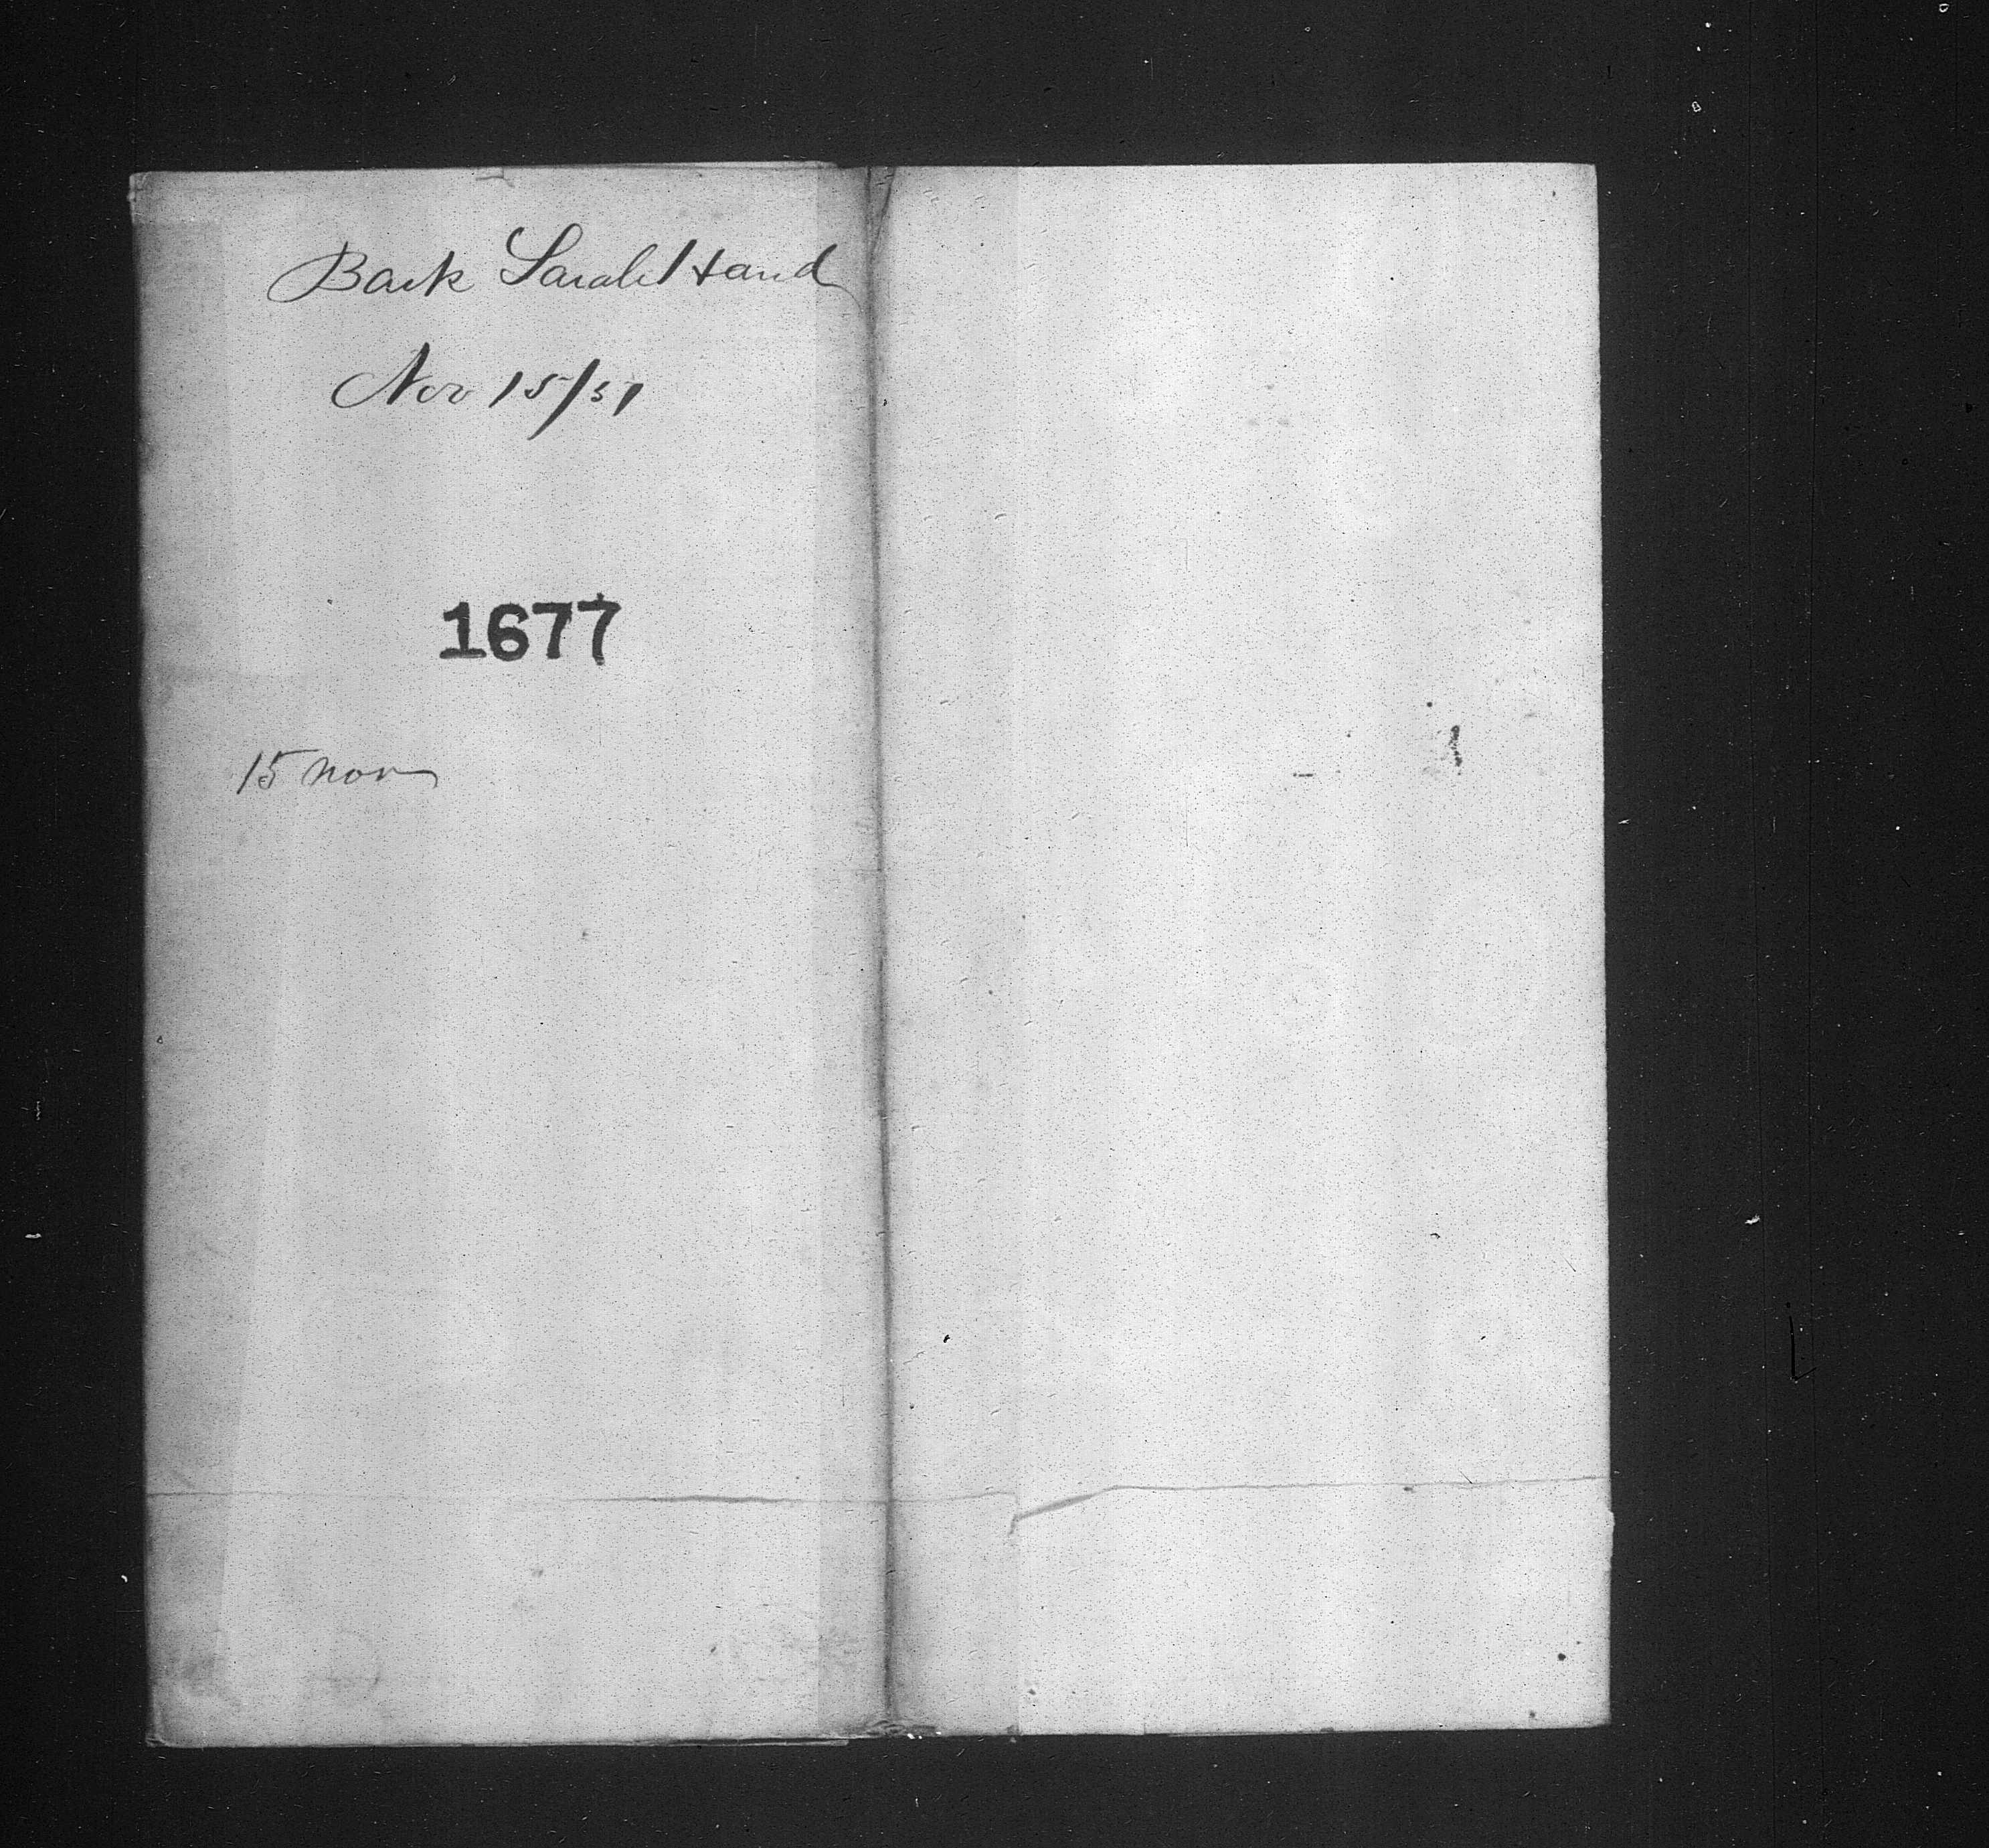 Bark Sarah Hand
Nov 15/51
1677
15 Nov